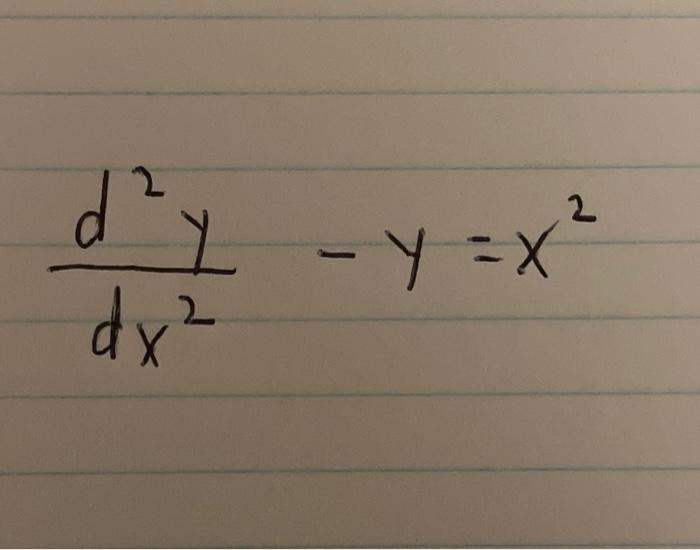 d²y/dx² - y = x²